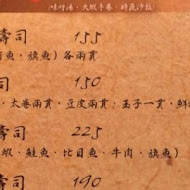 味噌湯、大蝦手卷、時蔬沙拉
壽司 155
魚、旗魚）各兩貫
壽司 150
、太卷兩貫、豆皮兩貫；玉子一貫，鮮
壽司 225
蝦、鮭魚、比目魚、牛肉、旗魚）
壽司 190